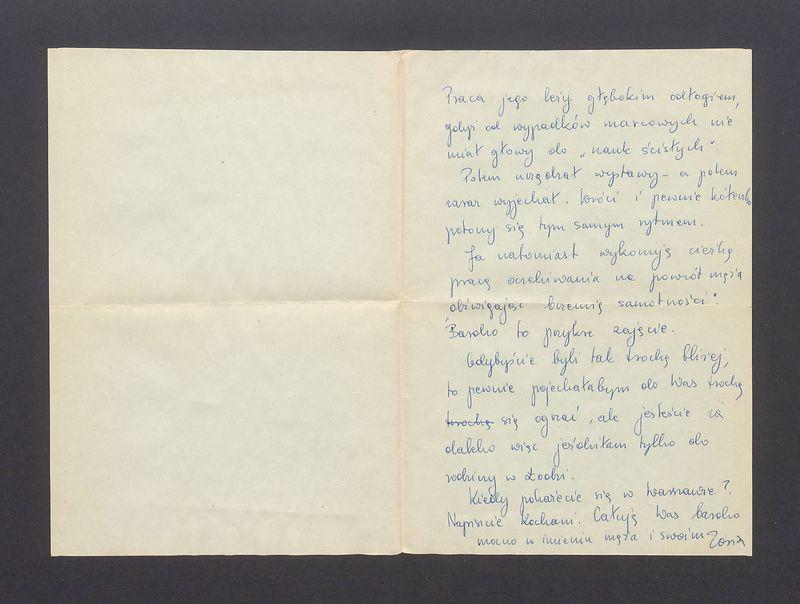 Praca jego leży głębokim odłogiem,
gdyż od wypadków marcowych nie
miał głowy do „nauk ścisłych”.
Potem urządzał wystawy – a potem
zaraz wyjechał. Wróci i pewnie kółeczko
potoczy się tym samym rytmem.
Ja natomiast wykonuję ciężką
pracę oczekiwania na powrót męża
dźwigając brzemię samotności".
Bardzo to przykre zajęcie.
Gdybyście byli tak trochę bliżej,
to pewnie pojechałabym do Was trochę
trochę się ogrzać, ale jesteście za
daleko więc jeździłam tylko do
rodziny w Łodzi.
Kiedy pokażecie się w Warszawie?
Napiszcie kochani. Całuję Was bardzo
mocno w imieniu męża i swoim Zosia